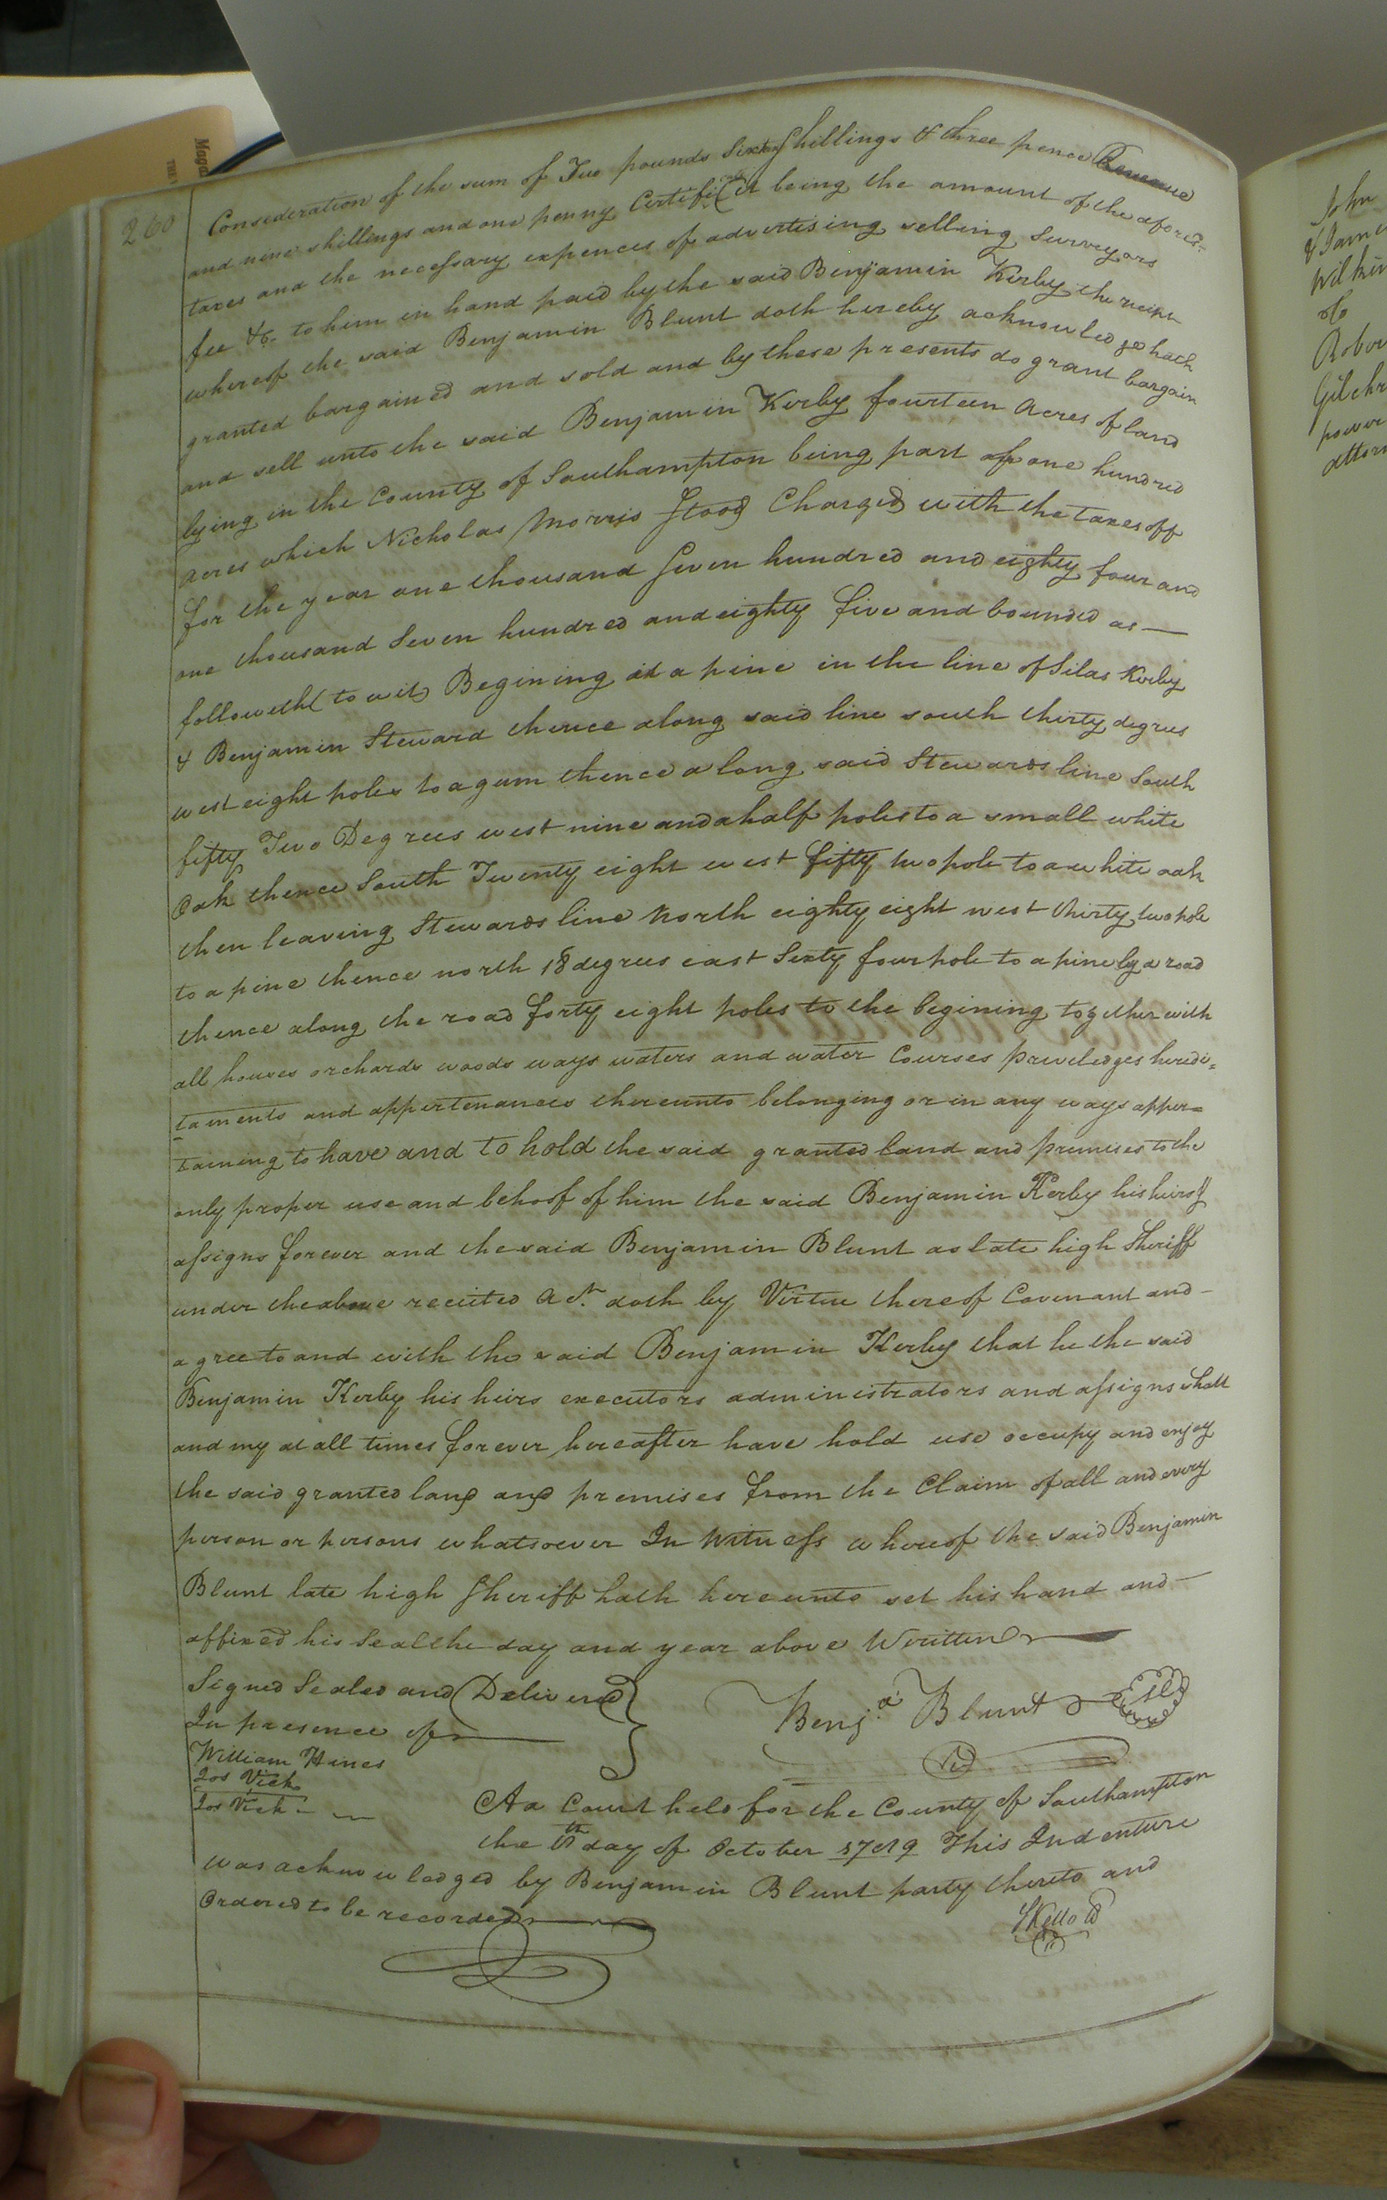 260
Consideration of the sum of Two pounds Sixteen Shillings & three pence Revenue
and nine shillings and one penny Certificat being the amount of the aforesd.
taxes and the necessary expences of advertising selling Surveyors
fee &c. to him in hand paid by the said Benjamin Kerby the receipt
whereof the said Benjamin Blunt doth hereby acknowledge hath
granted bargained and sold and by these presents do grant bargain
and sell unto the said Benjamin Kerby fourteen Acres of land
lying in the County of Southampton being part of one hundred
Acres which Nicholas Morris Stood Charged with the taxes off
for the year one thousand Seven hundred and eighty four and
one thousand Seven hundred and eighty five and bounded as
followeth (to wit) Begining at a pine in the line of Silas Kirby
& Benjamin Steward thence along said line south thirty degrees
west eight poles to a gum thence along said Stewards line South
fifty Two Degrees west nine and a half poles to a small white
Oak thence South Twenty eight west fifty two pole to a white oak
then leaving Stewards line North eighty eight west thirty two pole
to a pine thence north 18 degrees east Sixty four pole to a pine by a road
thence along the road forty eight poles to the begining together with
all houses orchards woods ways waters and water Courses priveledges heridi=
taments and appertenances thereunto belonging or in any ways apper=
taining to have and to hold the said granted land and premises to the
only proper use and behoof of him the said Benjamin Kerby his heirs &
assigns forever and the said Benjamin Blunt as late high Sheriff
under the above recited Act. doth by Virtue thereof Covenant and
agree to and with the said Benjamin Kerby that he the said
Benjamin Kerby his heirs executors administrators and assigns shall
and my at all times forever hereafter have hold use occupy and enjoy
the said granted land and premises from the Claim of all and every
person or persons whatsoever In Witness whereof the said Benjamin
Blunt late high Sheriff hath hereunto set his hand and
affixed his Seal the day and year above Written
Signed Sealed and Delivered
In presence of
Benja. Blunt
William Hines
Jos Vick
Jos Vick
At a Court held for the County of Southampton
the 8th day of October 1789 This Indenture
was acknowledged by Benjamin Blunt party thereto and
Ordered to be recorded
John
& Jame
Wilkin
to
Rober
Gilchr
power
attorn